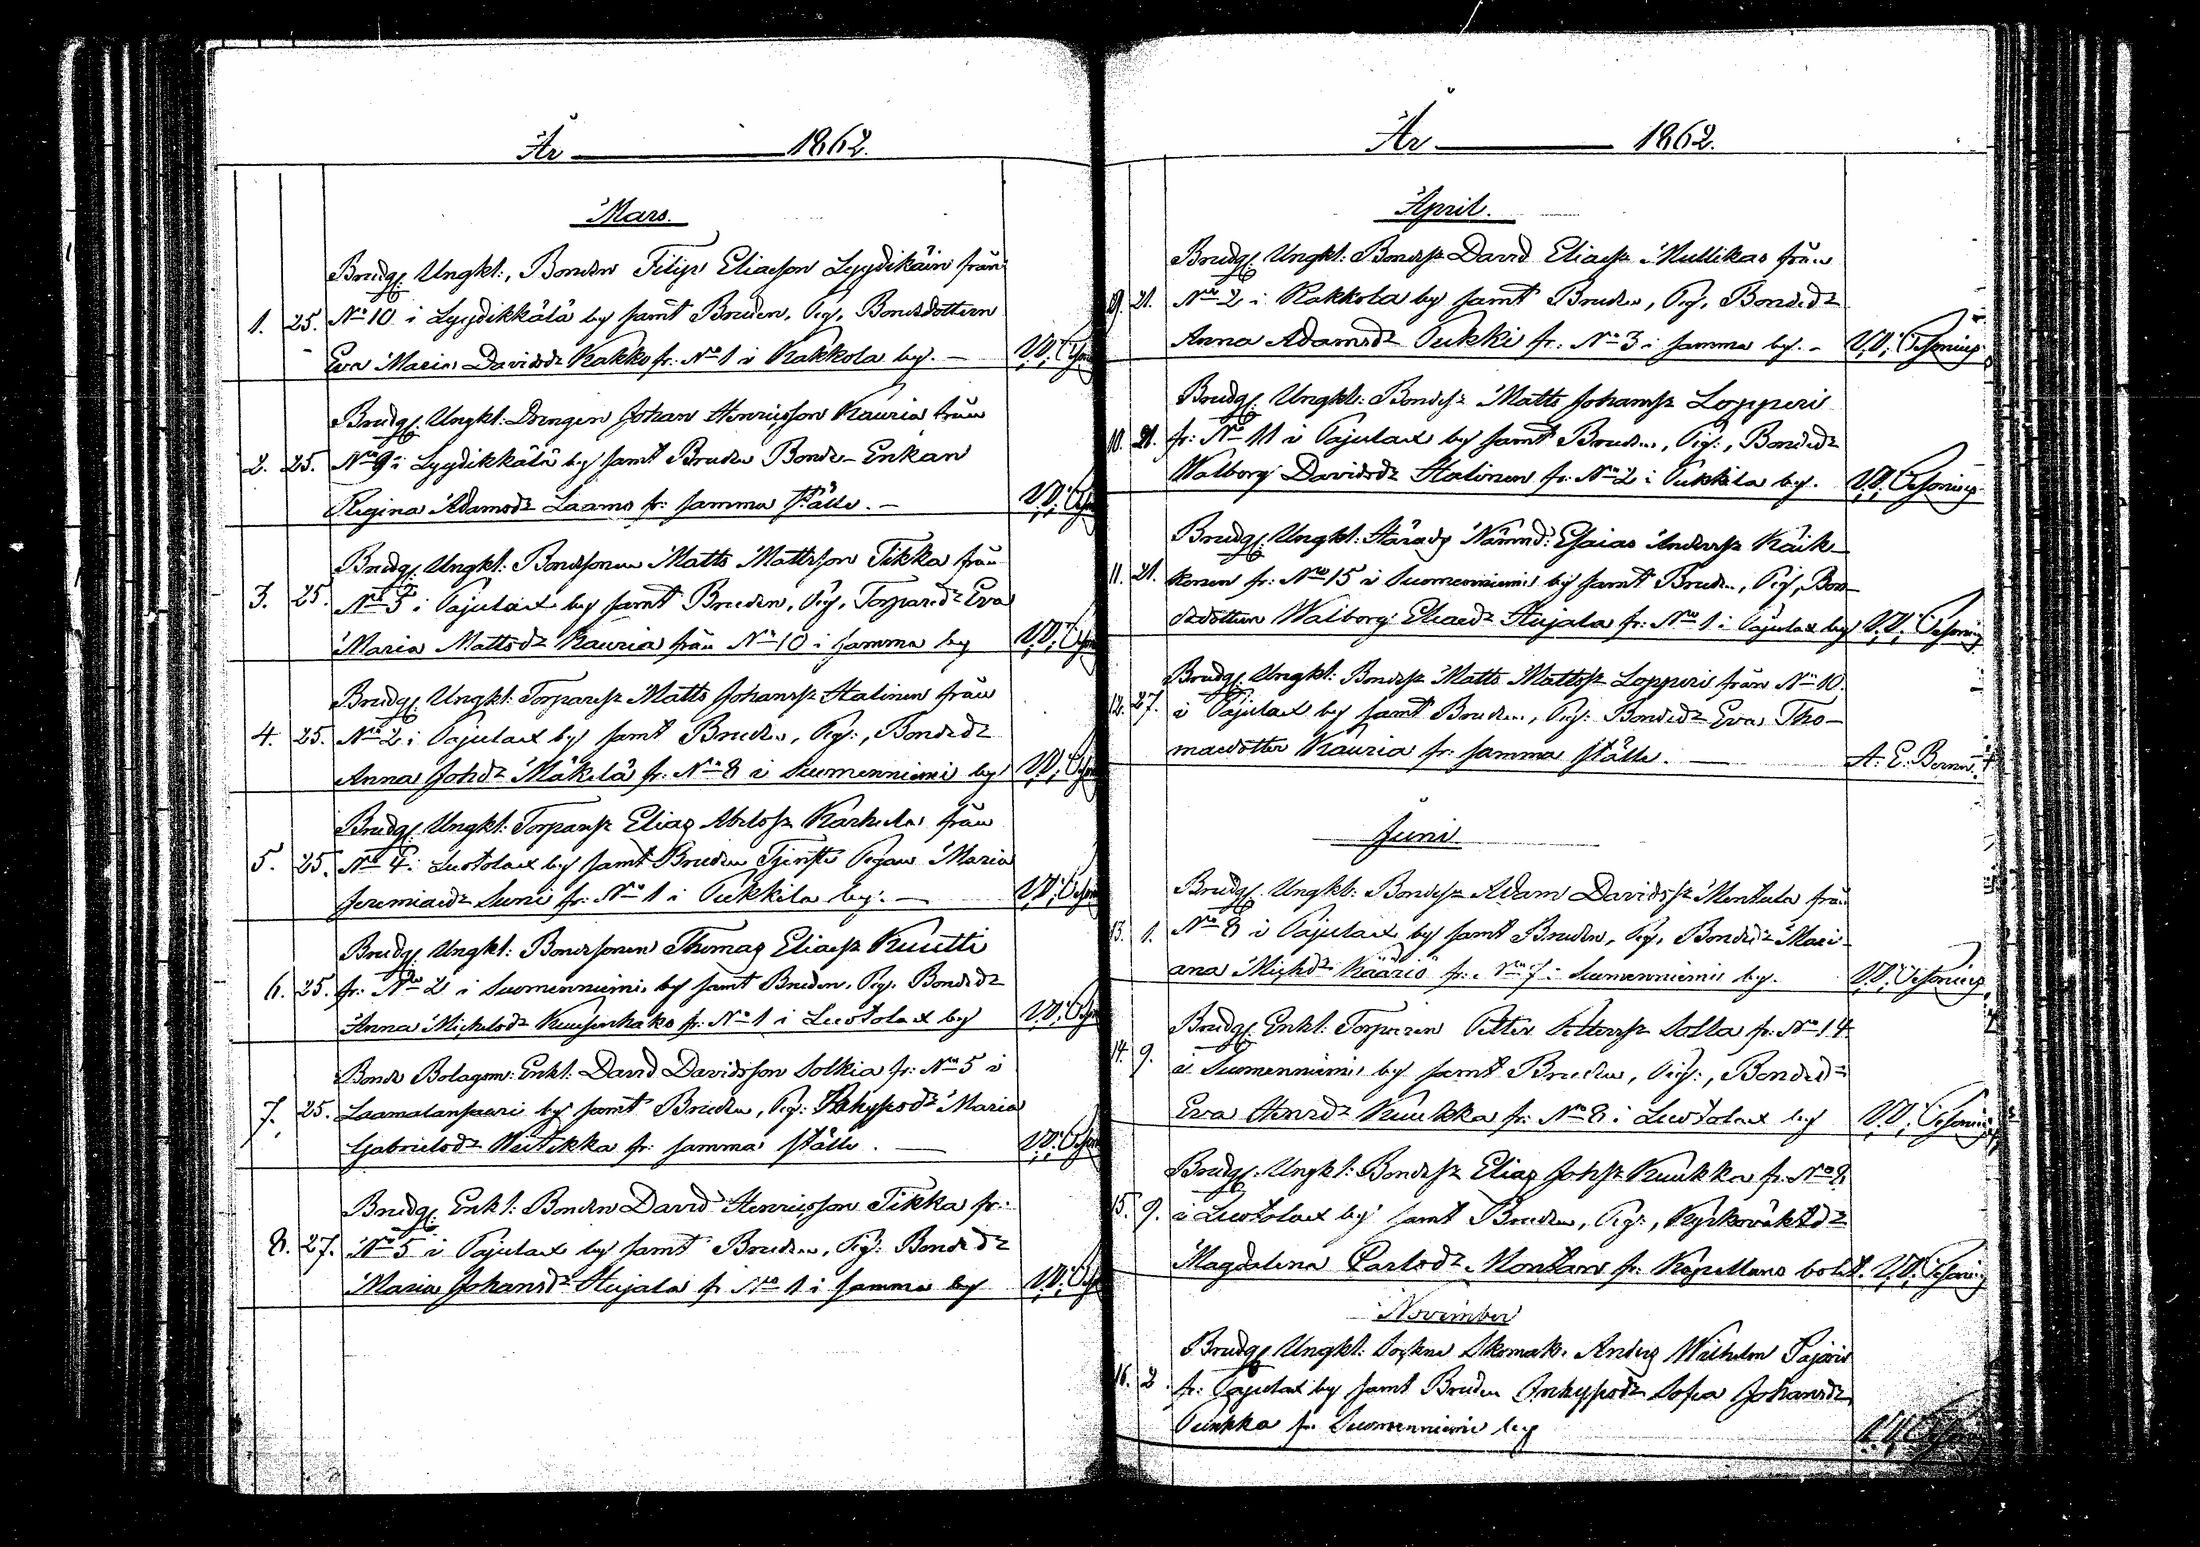 År 1862.
Mars.
Brudg. Ungkl:, Bonden Filip Eliasson Lyydikäin från
1. 25. No 10 i Lyydikkälä by samt Bruden, Pig, Bondedottern
Eva Maria Davidsdr Kakko fr: No 1 i Kakkola by. —
Brudg. Ungkl: Drengen Johan Henricsson Kauria från
2. 25. No 9 i Lyydikkälä by samt Bruden Bonde-Enkan
Regina Adamsdr Laamo fr: samma ställe. —
Brudg. Ungkl: Bondesonen Matts Mattsson Tikka från
3. 25. No 5 i Pajulax by samt Bruden, Pig, Torparedr Eva
Maria Mattsdr Kauria från No 10 i samma by
Brudg. Ungkl: Torparesr Matts Johanssr Halinen från
4. 25. No 2 i Pajulax by samt Bruden, Pig:, Bondedr
Anna Johdr Mäkelä fr: No 8 i Suomenniemi by
Brudg. Ungkl: Torparesr Elias Abelssr Karhula från
5. 25. No 4 i Luotolax by samt Bruden Tjenste Pigan Maria
Jeremiaedr Suni fr: No 1 i Pukkila by. —
Brudg. Ungkl: Bondesonen Thomas Eliassr Kuutti
6. 25. fr: No 2 i Suomenniemi by samt Bruden, Pig. Bondedr
Anna Michelsdr Kuusenhako fr: No 1 i Luotolax by
Bonde Bolagsm: Enkl: David Davidsson Solkia fr: No 5 i
7. 25. Laamalansaari by samt Bruden, Pig: Inhysesdr Maria
Gabrielsdr fr: samma ställe. —
Brudg. Enkl: Bonden David Henricsson Tikka fr:
8. 27. No 5 i Pajulax by samt Bruden, Pig: Bondedr
Maria Johansdr Hujala fr No 1 i samma by
År 1862.
April.
Brudg. Ungkl: Bondesr David Eliassr Mullikas från
9. 21. No 2 i Kakkola by samt Bruden, Pig, Bondedr
Anna Adamsdr Pukki fr: No 3 i samma by. —
Brudg. Ungkl: Bondesr Matts Johanssr Lopperi
10. 21. fr: No 11 i Pajulax by samt Bruden, Pig:, Bondedr
Walborg Davidsdr Halinen fr: No 2 i Pukkila by.
Brudg. Ungkl: Härads Nämnd: Esaias Anderssr Käik-
11. 21. konen fr: No 15 i Suomenniemi by samt Bruden, Pig, Bon-
dedottern Walborg Eliaedr Hujala fr: No 1 i Pajulax by
Brudg. Ungkl: Bondesr Matts Mattssr Lopperi från No 10
12. 27. i Pajulax by samt Bruden, Pig: Bondedr Eva Tho-
masdotter Kauria fr: samma ställe. —
A. E.
Juni
Brudg. Ungkl: Bondesr Adam Davidssr Monthula från
13. 1. No 8 i Pajulax by samt Bruden, Pig, Bondedr Mari-
ana Michdr Kääriä fr: No 7 i Suomenniemi by.
Brudg. Enkl: Torparen Petter Petterssr Solla fr: No 14
14. 9. i Suomenniemi by samt Bruden, Pig:, Bondedr
Eva Henrdr Kuukka fr: No 8 i Luotolax by
Brudg. Ungkl: Bondesr Elias Johsr Kuukka fr: No 8
15. 9. i Luotolax by samt Bruden, Pig:, Kyrkovaktdr
Magdalena Carlsdr Montars fr: Kapellans bolst.
November
Brudg. Ungkl: Sockne Skomak. Anders Wilhelm Pajari
16. 2. fr: Pajulax by samt Bruden Inhysesdr Sofia Johansdr
Punkka fr Suomenniemi by